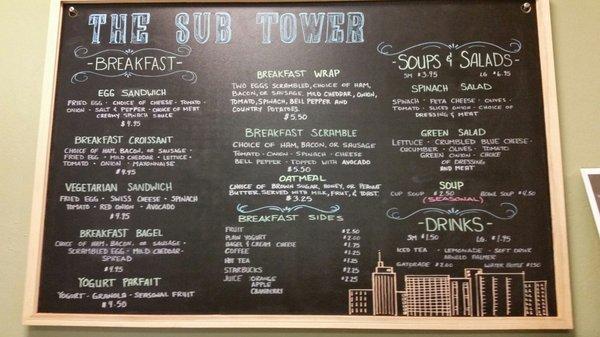 THE SUB TOWER
BREAKFAST
EGG SANDWICH
FRIED EGG · CHOICE OF CHEESE · TOMATO ·
ONION · SALT & PEPPER · CHOICE OF MEAT
CREAMY SPINACH SAUCE
$4.95
BREAKFAST CROISSANT
CHOICE OF HAM, BACON, OR SAUSAGE ·
FRIED EGG · MILD CHEDDAR · LETTUCE ·
TOMATO · ONION · MAYONNAISE
$4.95
VEGETARIAN SANDWICH
FRIED EGG · SWISS CHEESE · SPINACH
TOMATO · RED ONION · AVOCADO
$4.95
BREAKFAST BAGEL
CHOICE OF HAM, BACON, OR SAUSAGE ·
SCRAMBLED EGG · MILD CHEDDAR ·
SPREAD
$4.95
YOGURT PARFAIT
YOGURT · GRANOLA · SEASONAL FRUIT
$4.50
BREAKFAST WRAP
TWO EGGS SCRAMBLED, CHOICE OF HAM,
BACON, OR SAUSAGE, MILD CHEDDAR, ONION,
TOMATO, SPINACH, BELL PEPPER AND
COUNTRY POTATOES.
$5.50
BREAKFAST SCRAMBLE
CHOICE OF HAM, BACON, OR SAUSAGE
TOMATO · ONION · SPINACH · CHEESE
BELL PEPPER · TOPPED WITH AVOCADO
$5.50
OATMEAL
CHOICE OF BROWN SUGAR, HONEY, OR PEANUT
BUTTER. SERVED WITH MILK, FRUIT, & TOAST.
$3.25
BREAKFAST SIDES
FRUIT $2.50
PLAIN YOGURT $2.00
BAGEL & CREAM CHEESE $1.75
COFFEE $1.25
HOT TEA $1.25
STARBUCKS $2.25
JUICE ORANGE $1.25
APPLE
CRANBERRY
SOUPS & SALADS
SM $3.95 LG $6.95
SPINACH SALAD
SPINACH · FETA CHEESE · OLIVES ·
TOMATO · SLICED ONION · CHOICE OF
DRESSING & MEAT
GREEN SALAD
LETTUCE · CRUMBLED BLUE CHEESE
CUCUMBER · OLIVES · TOMATO
GREEN ONION · CHOICE
OF DRESSING
AND MEAT
SOUP
CUP SOUP $2.50 BOWL SOUP $4.50
(SEASONAL)
DRINKS
SM $1.50 LG $1.95
ICED TEA · LEMONADE · SOFT DRINK
ARNOLD PALMER
GATORADE $2.00 WATER BOTTLE $1.50